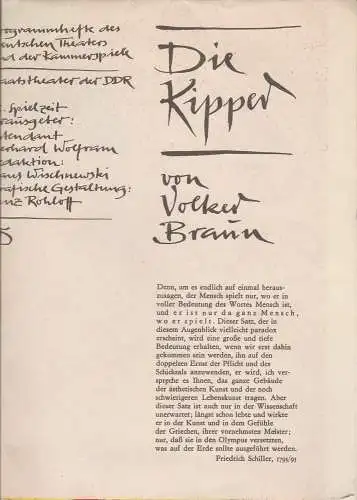 rogrammhefte des
eutschen Theaters
nd der Kammerspiele
aatstheater der DDR
. Spielzeit
rausgeber:
tendant
erhard Wolfram
daktion:
aus Wischnewski
rafische Gestaltung:
inz Rohloff
5
Die
Kipper
von
Volker
Braun
Denn, um es endlich auf einmal heraus-
zusagen, der Mensch spielt nur, wo er in
voller Bedeutung des Wortes Mensch ist,
und er ist nur da ganz Mensch,
wo er spielt. Dieser Satz, der in
diesem Augenblick vielleicht paradox
erscheint, wird eine große und tiefe
Bedeutung erhalten, wenn wir erst dahin
gekommen sein werden, ihn auf den
doppelten Ernst der Pflicht und des
Schicksals anzuwenden, er wird, ich ver-
spreche es Ihnen, das ganze Gebäude
der ästhetischen Kunst und der noch
schwierigeren Lebenskunst tragen. Aber
dieser Satz ist auch nur in der Wissenschaft
unerwartet; längst schon lebte und wirkte
er in der Kunst und in dem Gefühle
der Griechen, ihrer vornehmsten Meister;
nur, daß sie in den Olympus versetzten,
was auf der Erde sollte ausgeführt werden.
Friedrich Schiller, 1793/95